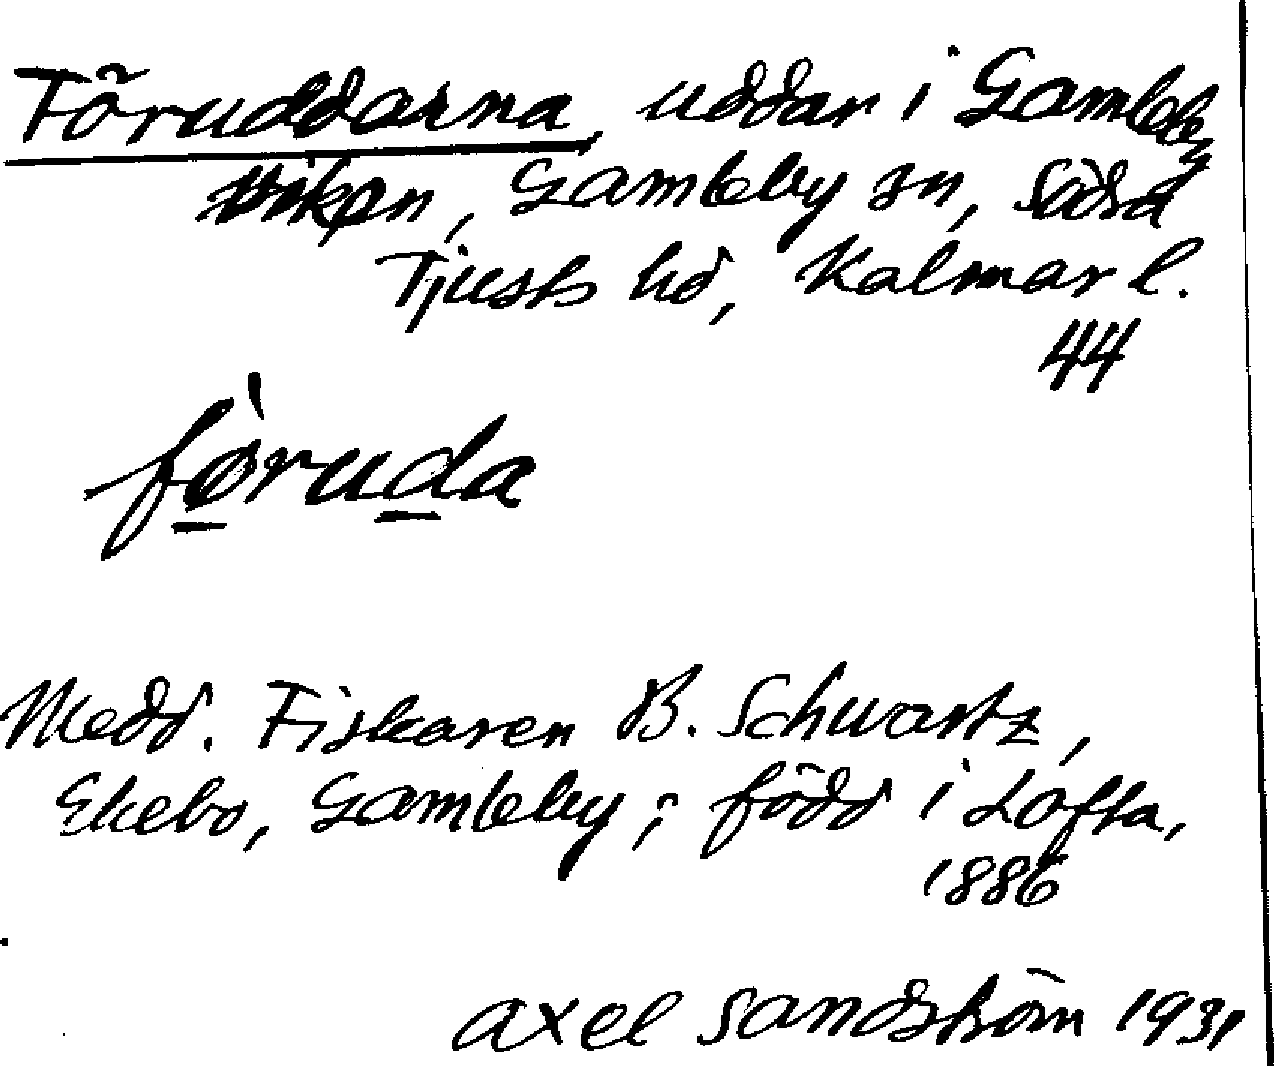 Föruddarna, uddar i Gamleby
viken, Gamleby sn, Södra
Tjusts hd, Kalmar l.
44
fòruda
Medd. Fiskaren B. Schwartz,
Ekebo, Gamleby; född i Lofta,
1886
Axel Sandström 1931